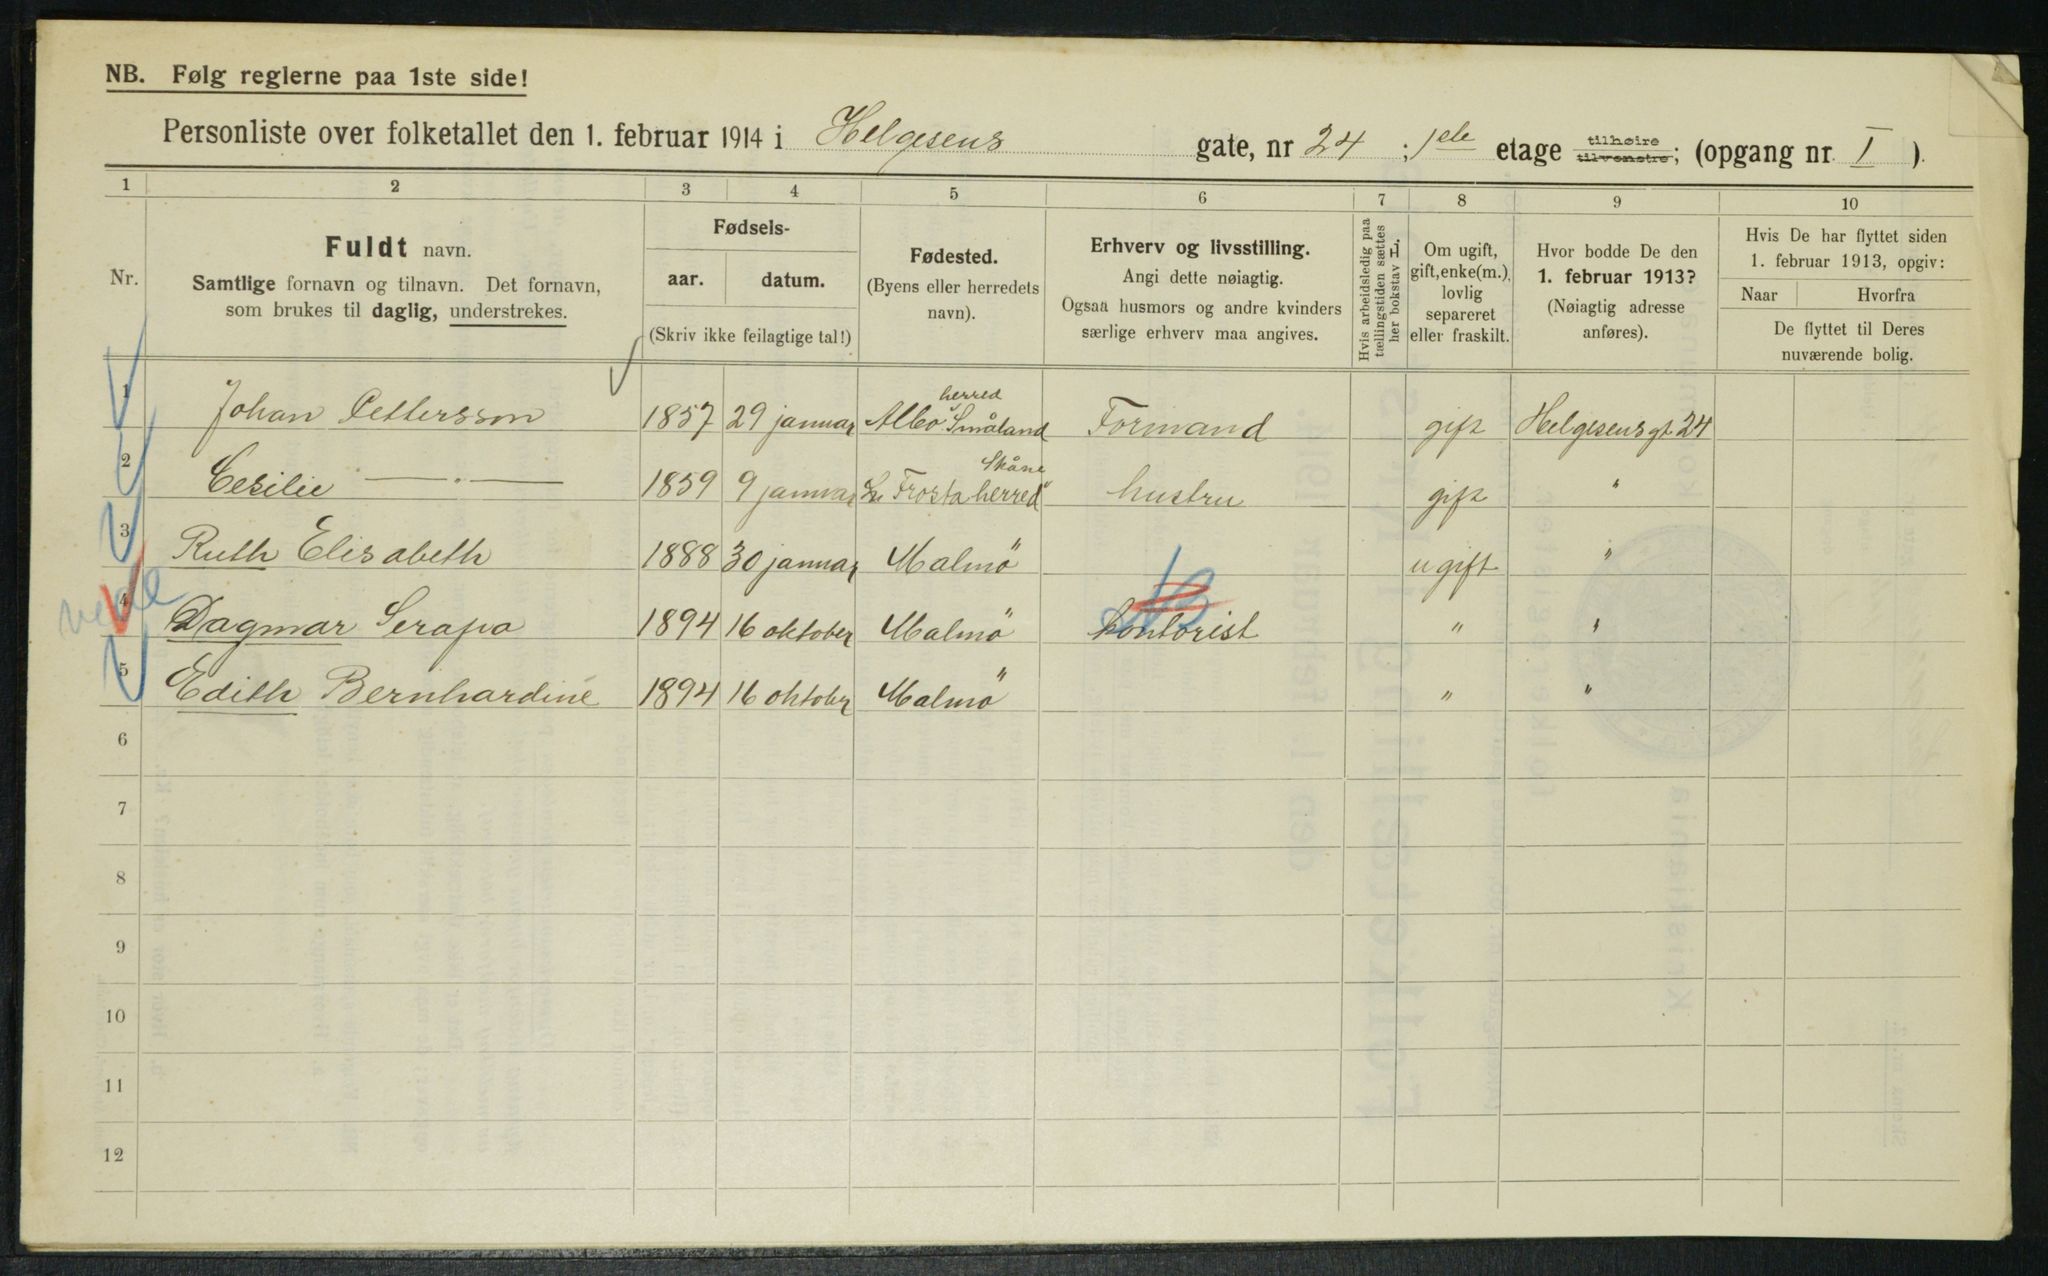 NB. Følg reglerne paa 1ste side!
Personliste over folketallet den 1. februar 1914 i Helgesens gate, nr 24 ; 1ste etage tilhøire tilvenstre; (opgang nr. I ).
1 2 3 4 5 6 7 8 9 10
Nr.
Fuldt navn.
Samtlige fornavn og tilnavn. Det fornavn,
som brukes til daglig, understrekes.
Fødsels-
aar. datum.
(Skriv ikke feilagtige tal!)
Fødested.
(Byens eller herredets
navn).
Erhverv og livsstilling.
Angi dette nøiagtig.
Ogsaa husmors og andre kvinders
særlige erhverv maa angives.
Hvis arbeidsledig paa
tællingstiden sættes
her bokstav L
Om ugift,
gift, enke(m.),
lovlig
separeret
eller fraskilt.
Hvor bodde De den
1. februar 1913?
(Nøiagtig adresse
anføres).
Hvis De har flyttet siden
1. februar 1913, opgiv:
Naar Hvorfra
De flyttet til Deres
nuværende bolig.
herred
1 Johan Pettersson 1857 29 januar Albo Småland Formand gift Helgesensgt 24
Skåne
2 Cesilie —„— 1859 9 januar Frosta herred hustru gift "
3 Ruth Elisabeth 1888 30 januar Malmö ugift "
4 Dagmar Serapo 1894 16 oktober Malmö kontorist " "
5 Edith Bernhardine 1894 16 oktober Malmö " "
6
7
8
9
10
11
12